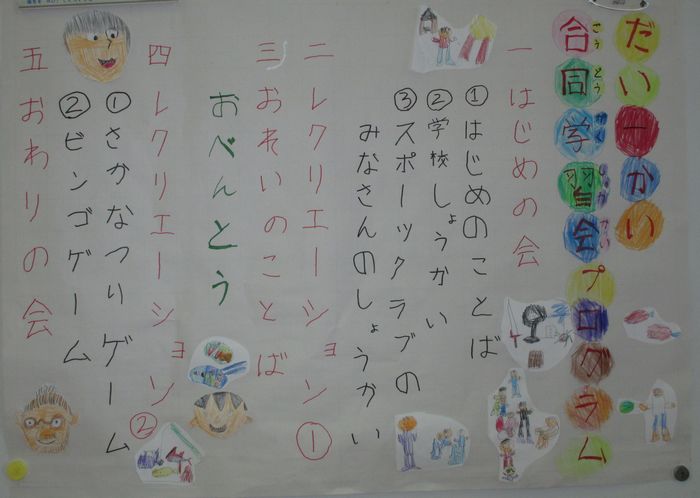 だい一かい
合同学習会プログラム
ごうどうがくしゅうかい
一 はじめの会
①はじめのことば
②学校しょうかい
③スポーックラブの
みなさんのしょうかい
二 レクリエーション①
三 おれいのことば
おべんとう
四 レクリエーション②
①さかなつりゲーム
②ビンゴゲーム
五 おわりの会